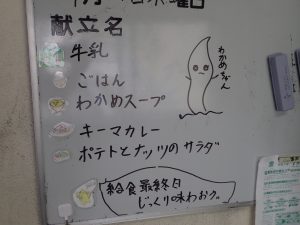 曜日
献立名
牛乳
ごはん
わかめスープ
キーマカレー
ポテトとナッツのサラダ
わかめちゃん
給食最終日
じっくり味わおう。